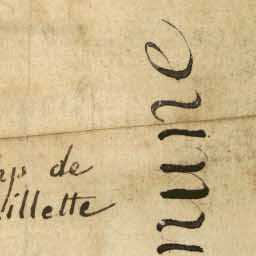 de
illette
nune